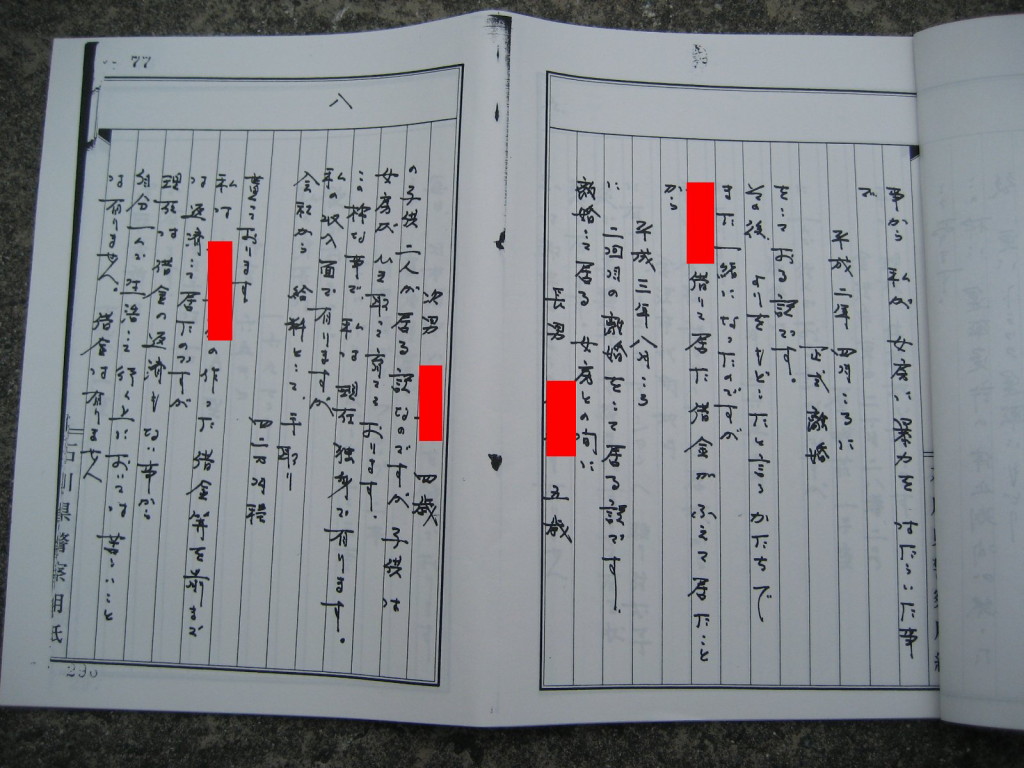 事から 私が 女房に 暴力を はたらいた事
で
平成二年 四月ころに
正式離婚
をしておる訳です。
その後 よりをもどしたと言うかたちで
また一緒になったのですが
借りて居た 借金が ふえて居たこと
から
平成三年 八月ころ
に 二回目の離婚をして居る訳です。
離婚して居る 女房との間に
長男 五歳
次男 四歳
の子供 二人が居る訳なのですが 子供は
女房が 引き取って育てて おります
この様な事で 私は 現在 独身で有ります。
私の収入面で有りますが
会社から 給料として 手取り
四二万円程
貰っております
私は の作った 借金等を前まで
は 返済して居たのですが
現在は 借金の返済もない事から
自分一人が生活して行く上においては 苦しいこと
は有りません。借金は有りません
八
77
石川県警察用紙
230